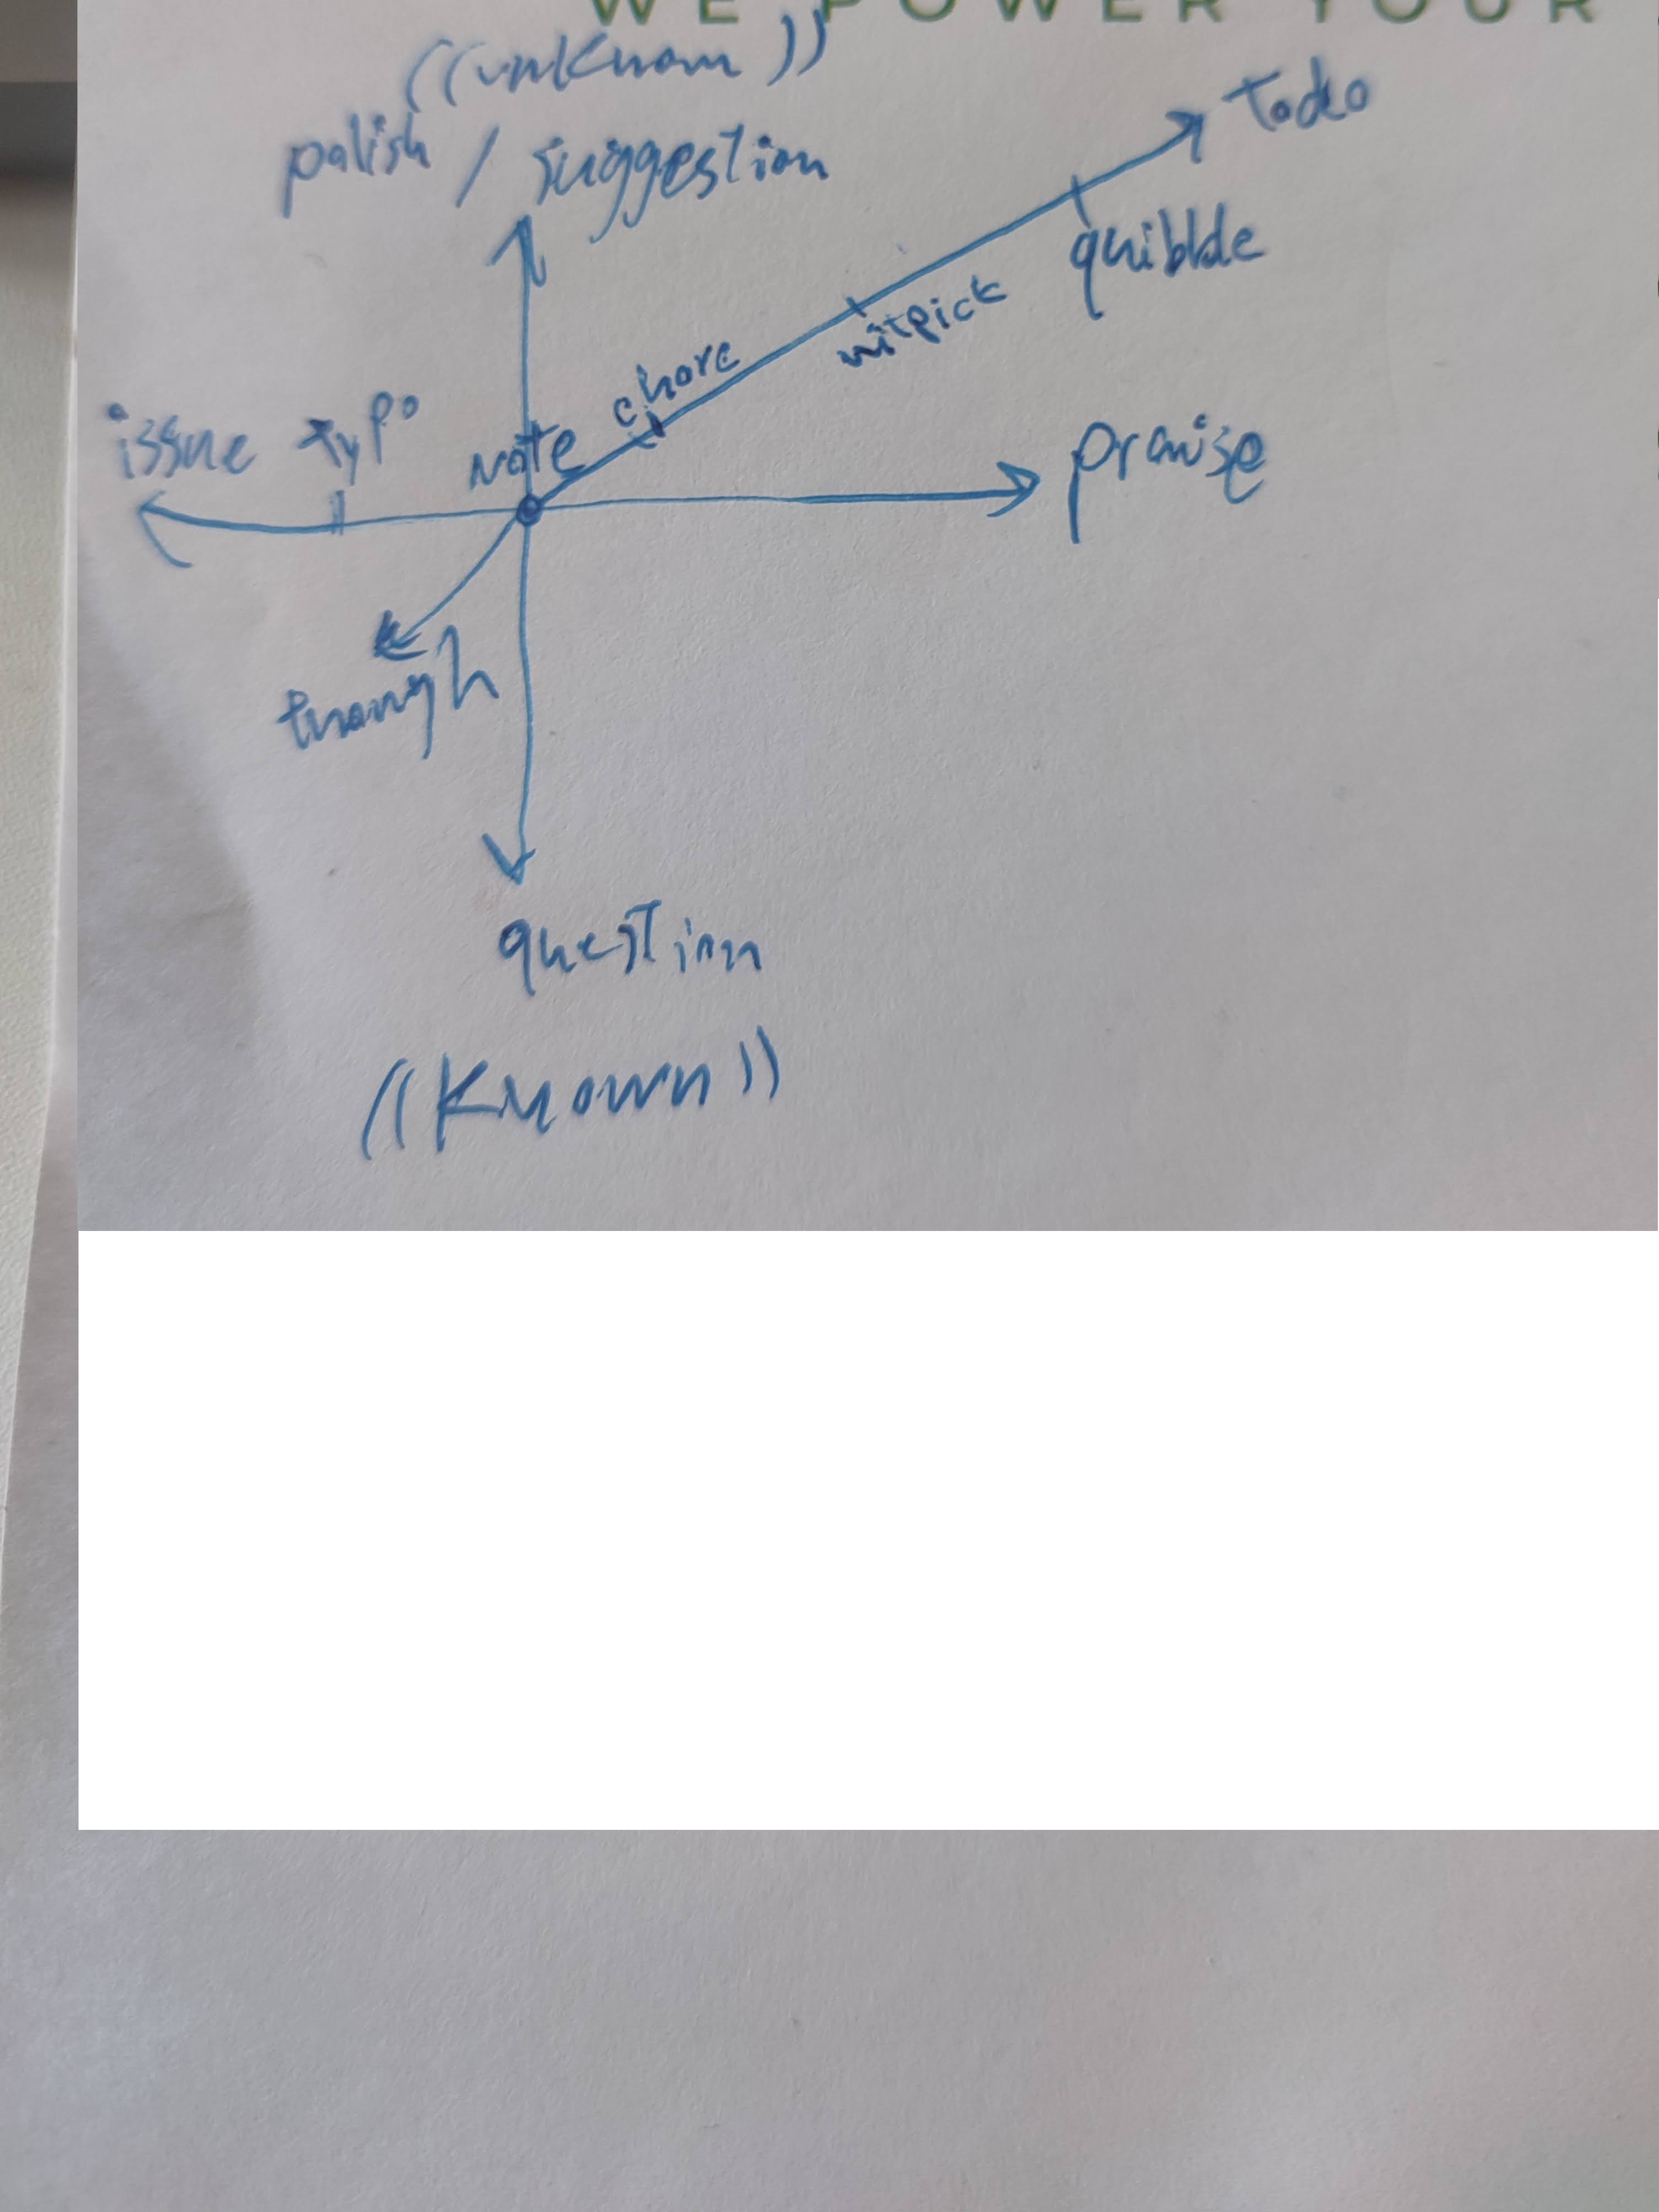 WE POWER YOUR
((unknown))
polish / suggestion
Todo
quibble
nitpick
chore
issue typo
Note
praise
though
question
((Known))